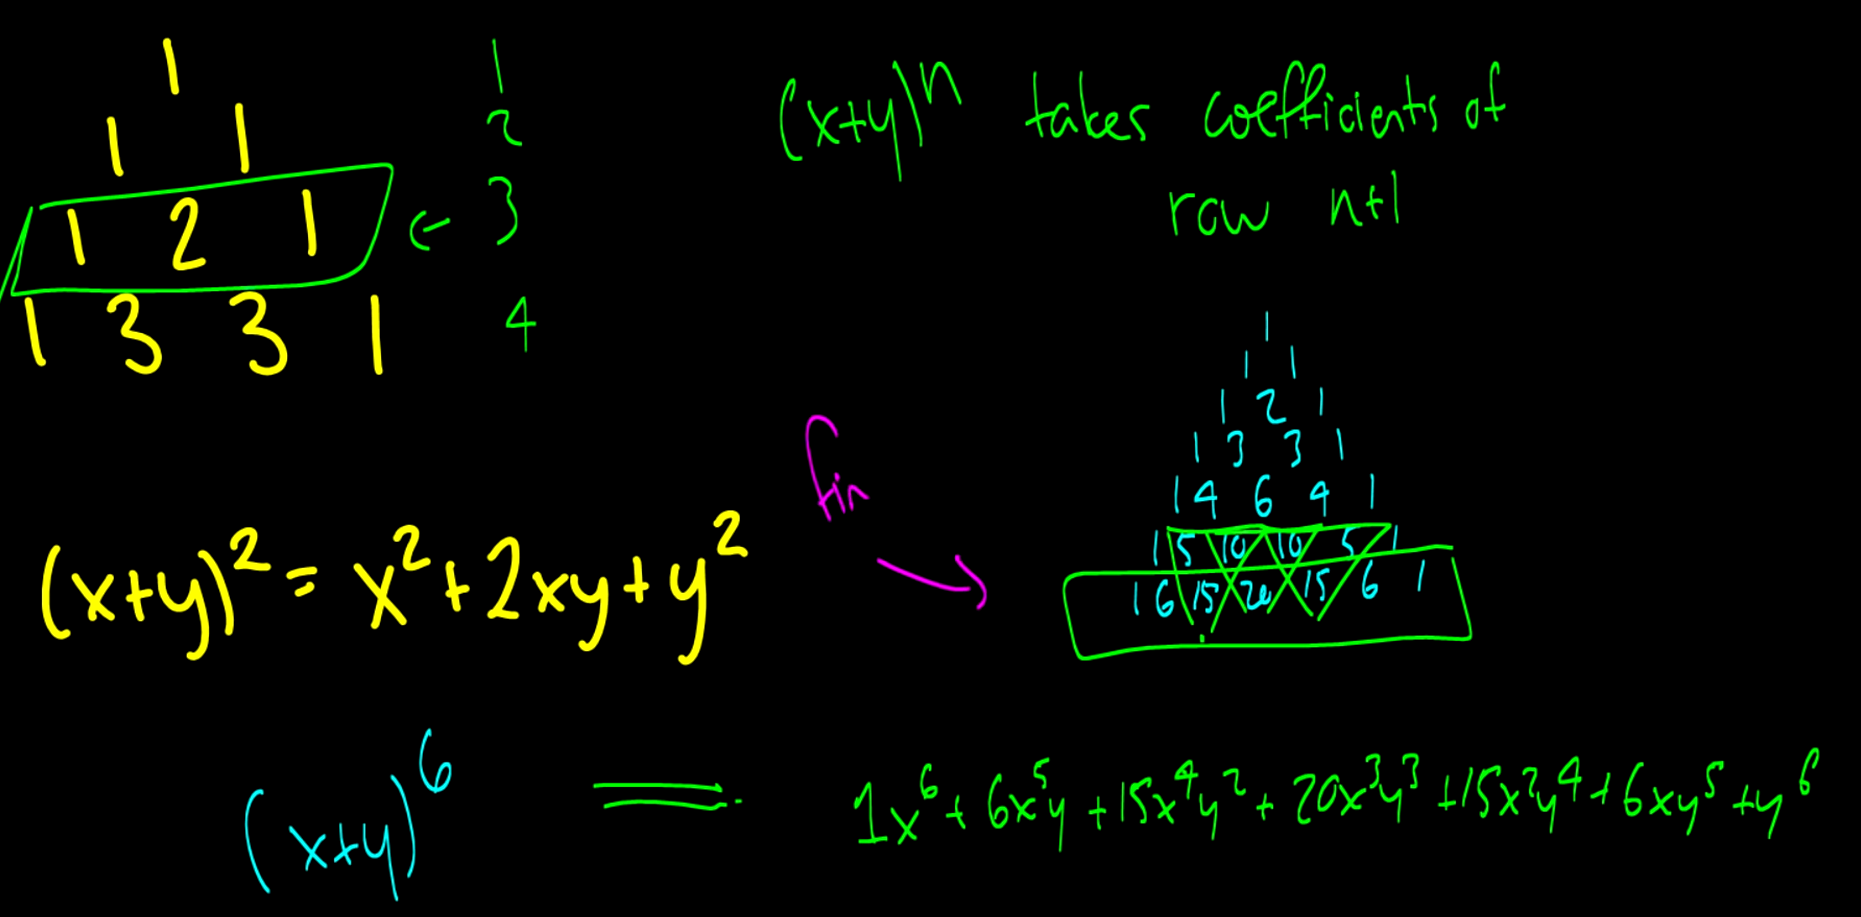 1 1
1 1 2
1 2 1 ← 3
1 3 3 1 4
(x+y)^n takes coefficients of
row n+1
1
1 1
1 2 1
1 3 3 1
1 4 6 4 1
1 5 10 10 5 1
1 6 15 20 15 6 1
fin →
(x+y)² = x² + 2xy + y²
(x+y)⁶ = 1x⁶ + 6x⁵y + 15x⁴y² + 20x³y³ + 15x²y⁴ + 6xy⁵ + y⁶